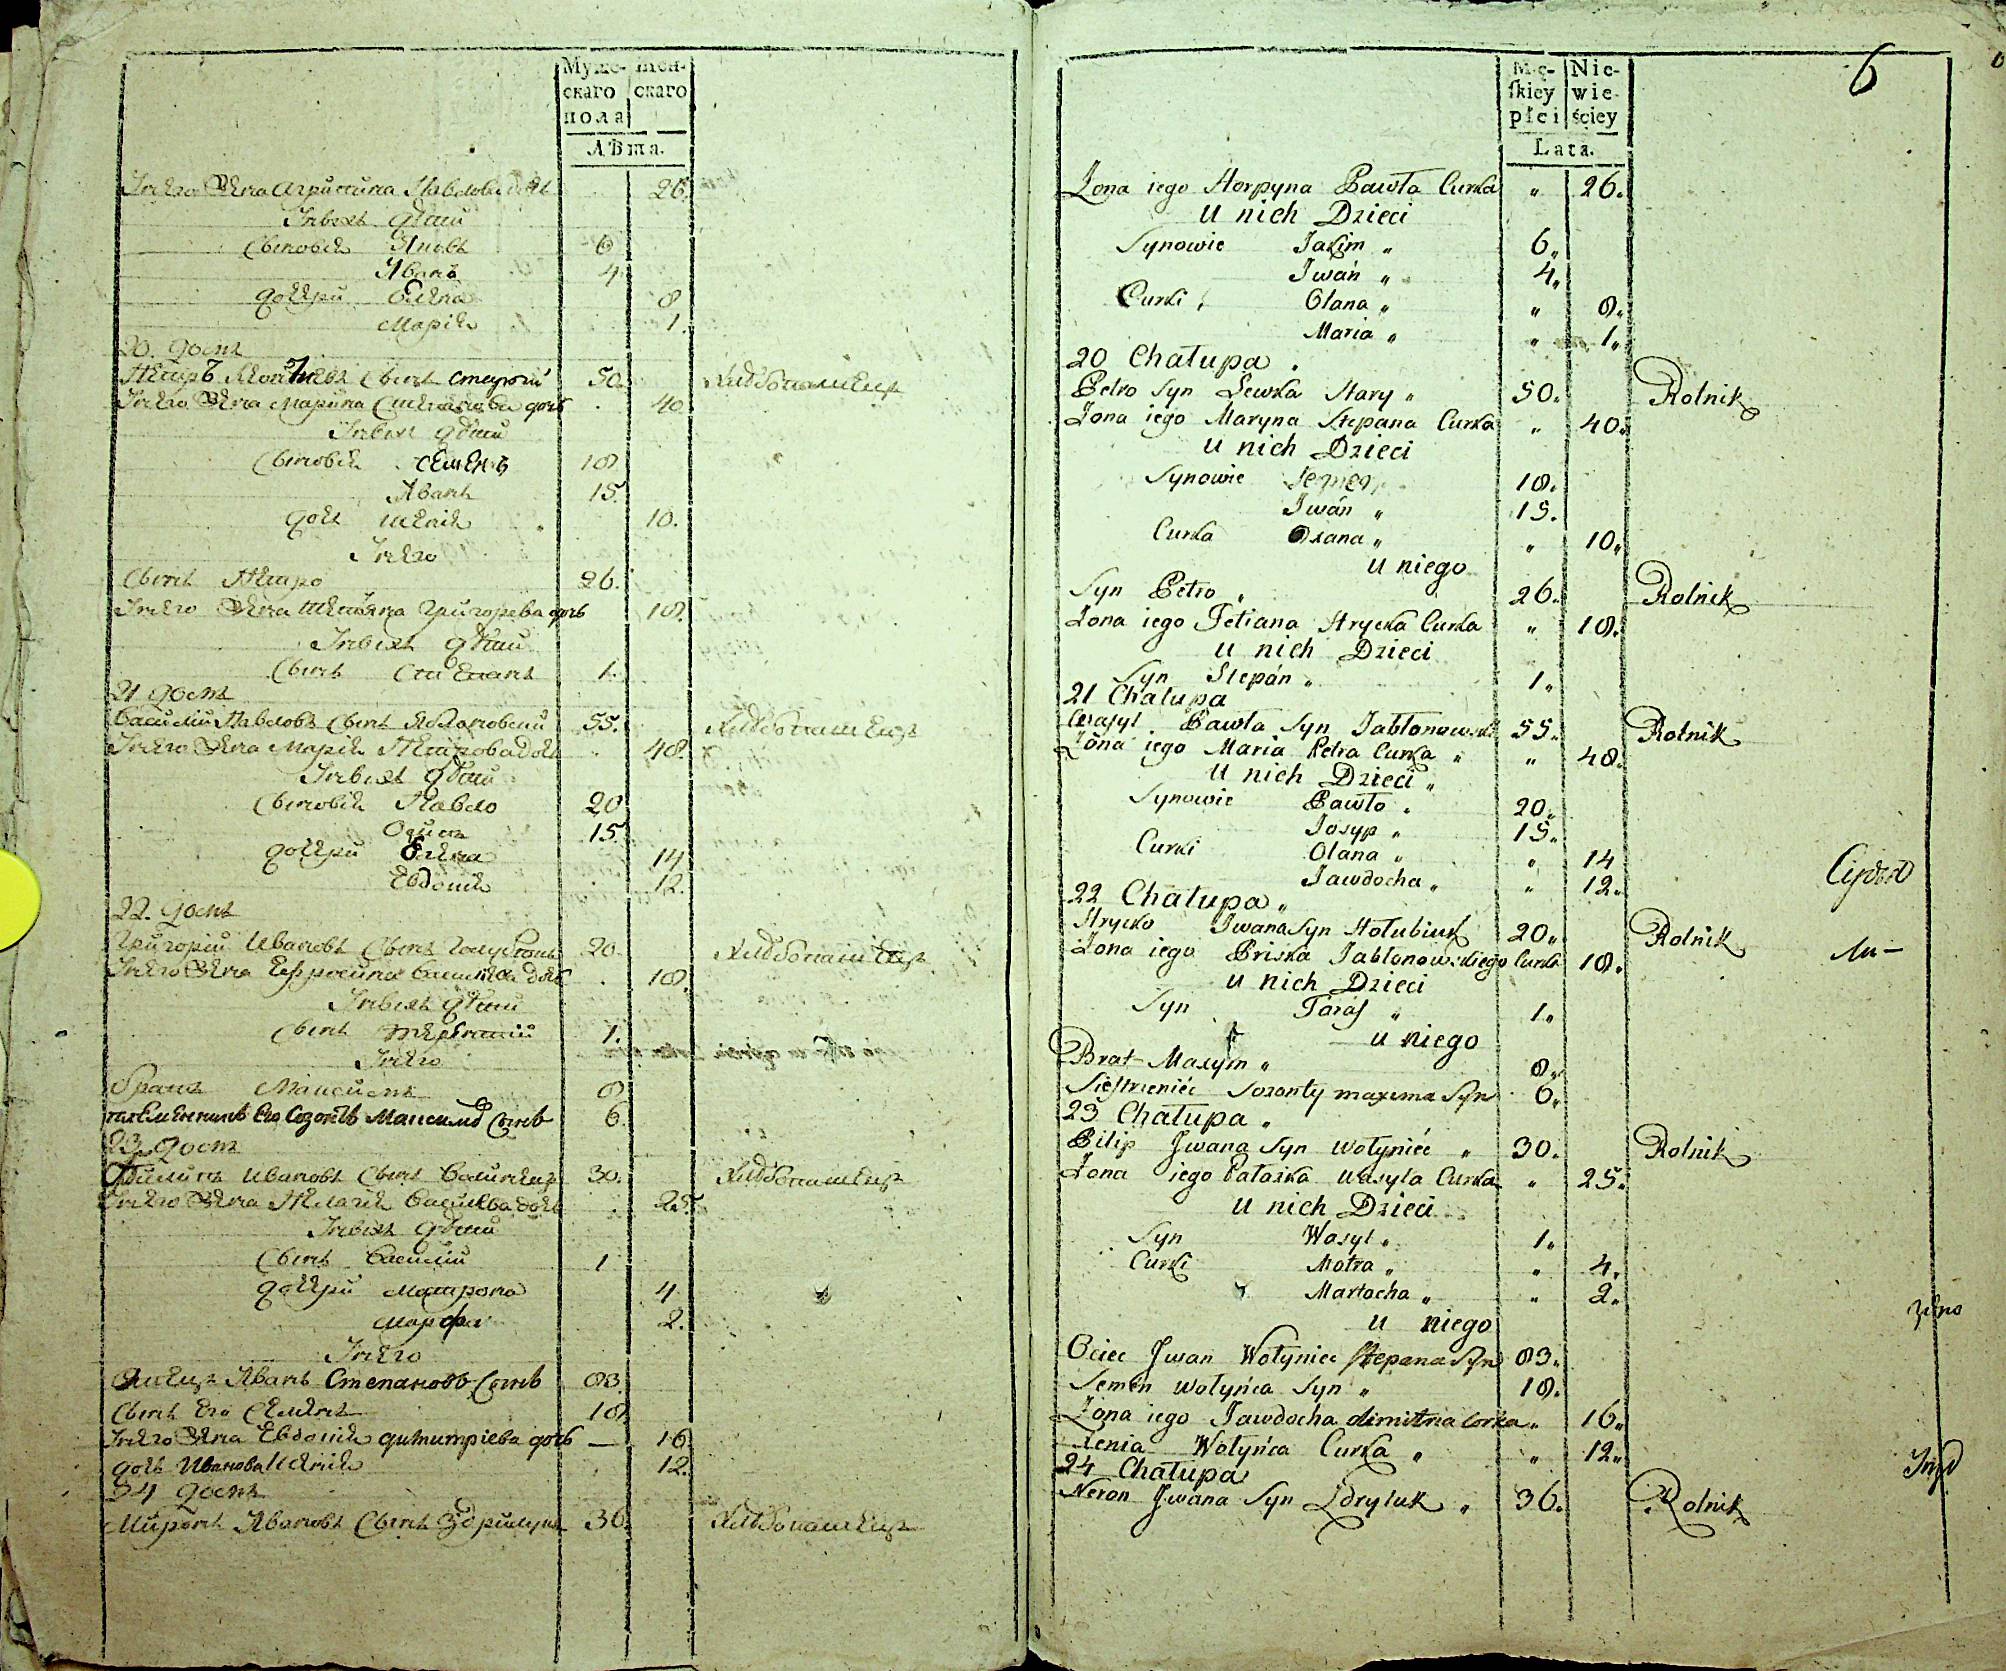 Муже-
скаго
пола
Жен-
скаго
Лѣта.
Унего Жена Агрипина Павлова дочь 26.
Унихъ дѣти
Сыновья Якимъ 6
Иванъ 4
дочери Елена 8
Марія 1.
20. домъ
Петръ Леонтіевъ Сынъ Старый 50. Хлѣбопашецъ
Унего Жена Марина Степанова дочь 40
Унихъ дѣти
Сыновья Семенъ 18
Иванъ 15.
дочь 10.
Унего
Сынъ Петро 26.
Унего Жена Тетьяна Григорева дочь 18.
Унихъ дѣти
Сынъ Степанъ 1.
21 домъ
Василій Павловъ Сынъ Яблоновскій 55. Хлѣбопашецъ
Унего Жена Марія Петрова дочь 48.
Унихъ дѣти
Сыновья Павло 20
Осипъ 15.
дочери Елена 14
Евдокія 12.
22. домъ
Григорій Ивановъ Сынъ 20. Хлѣбопашецъ
Унего Жена Ефросина дочь 18.
Унихъ дѣти
Сынъ 1.
Унего
Братъ Максимъ 8
племенникъ его Созонтъ Максима Сынъ 6.
23 домъ
Филипъ Ивановъ Сынъ Волынецъ 30. Хлѣбопашецъ
Унего Жена Пелагія Васильева дочь 25.
Унихъ дѣти
Сынъ Василій 1
дочери Матрона 4
Марфа 2.
Унего
Отецъ Иванъ Степановъ Сынъ 83.
Сынъ его Семенъ 18
Унего Жена Евдокія димитріева дочь — 16.
дочь Иванова Ксенія 12.
24 домъ
Миронъ Ивановъ Сынъ Здрилукъ 36. Хлѣбопашецъ
6
Mę-
skiey
płci
Nie-
wie-
ściey
Lata.
Zona iego Horpyna Pawła Curka " 26.
U nich Dzieci
Synowie Jakim " 6.
Iwan " 4.
Curki Olana " " 8.
Maria " " 1.
20 Chałupa.
Petro Syn Lewka Stary " 50. Rolnik
Zona iego Maryna Stepana Curka " 40.
U nich Dzieci
Synowie 18.
Iwan " 15.
Curka Oxana " " 10.
U niego
Syn Petro " 26. Rolnik
Zona iego Tetiana Hrycka Curka " 18.
U nich Dzieci
Syn Stepan " 1.
21 Chałupa
Wasyl Pawła Syn Jabłonowski 55. Rolnik
Zona iego Maria Petra Curka " " 48.
U nich Dzieci "
Synowie Pawło " 20.
Josyp " 15.
Curki Olana " " 14
Jawdocha " " 12.
22 Chałupa "
Hrycko Iwana Syn Hołubiuk 20. Rolnik
Zona iego Priska Jabłonowskiego Curka 18.
U nich Dzieci
Syn Taras " 1.
U niego
Brat Maxym " 8.
Siestrzeniec Sozonty maxima Syn 6.
23 Chałupa.
Pilip Iwana Syn Wołyniec " 30. Rolnik
Zona iego Palaska Wasyla Curka " 25.
U nich Dzieci
Syn Wasyl " 1.
Curki Motra " " 4.
Martocha " " 2.
U niego
Ociec Iwan Wołyniec Stepana Syn 83.
Semen Wołyńca Syn " 18.
Zona iego Jawdocha dimitria Corka " 16.
Xenia Wołyńca Curka " " 12.
24 Chałupa
Neron Iwana Syn Zdryluk " 36. Rolnik